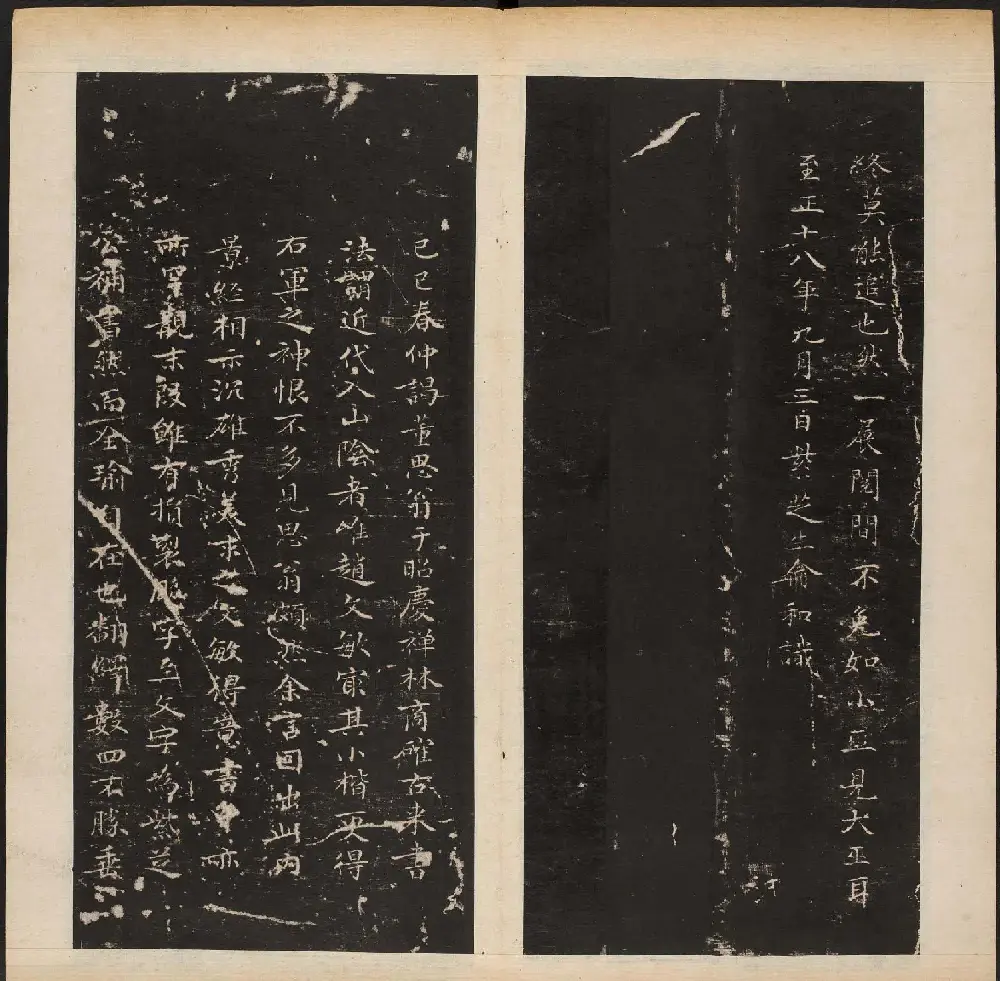 終莫能追也然一展閱間不免如小巫見大巫耳
至正十八年九月三日紫芝生俞和識
己巳春仲謁董思翁于昭慶禅林商確古来書
法謂近代入山陰者唯趙文敏寂其小楷更得
右軍之神恨不多見思翁頗然余言回出此內
景經相示沉雄秀美求之文敏得意書中亦
所罕覯末段雖有損製脫字缶文字為紫芝
公補書然而全瑜自在也翻繹數四右勝垂